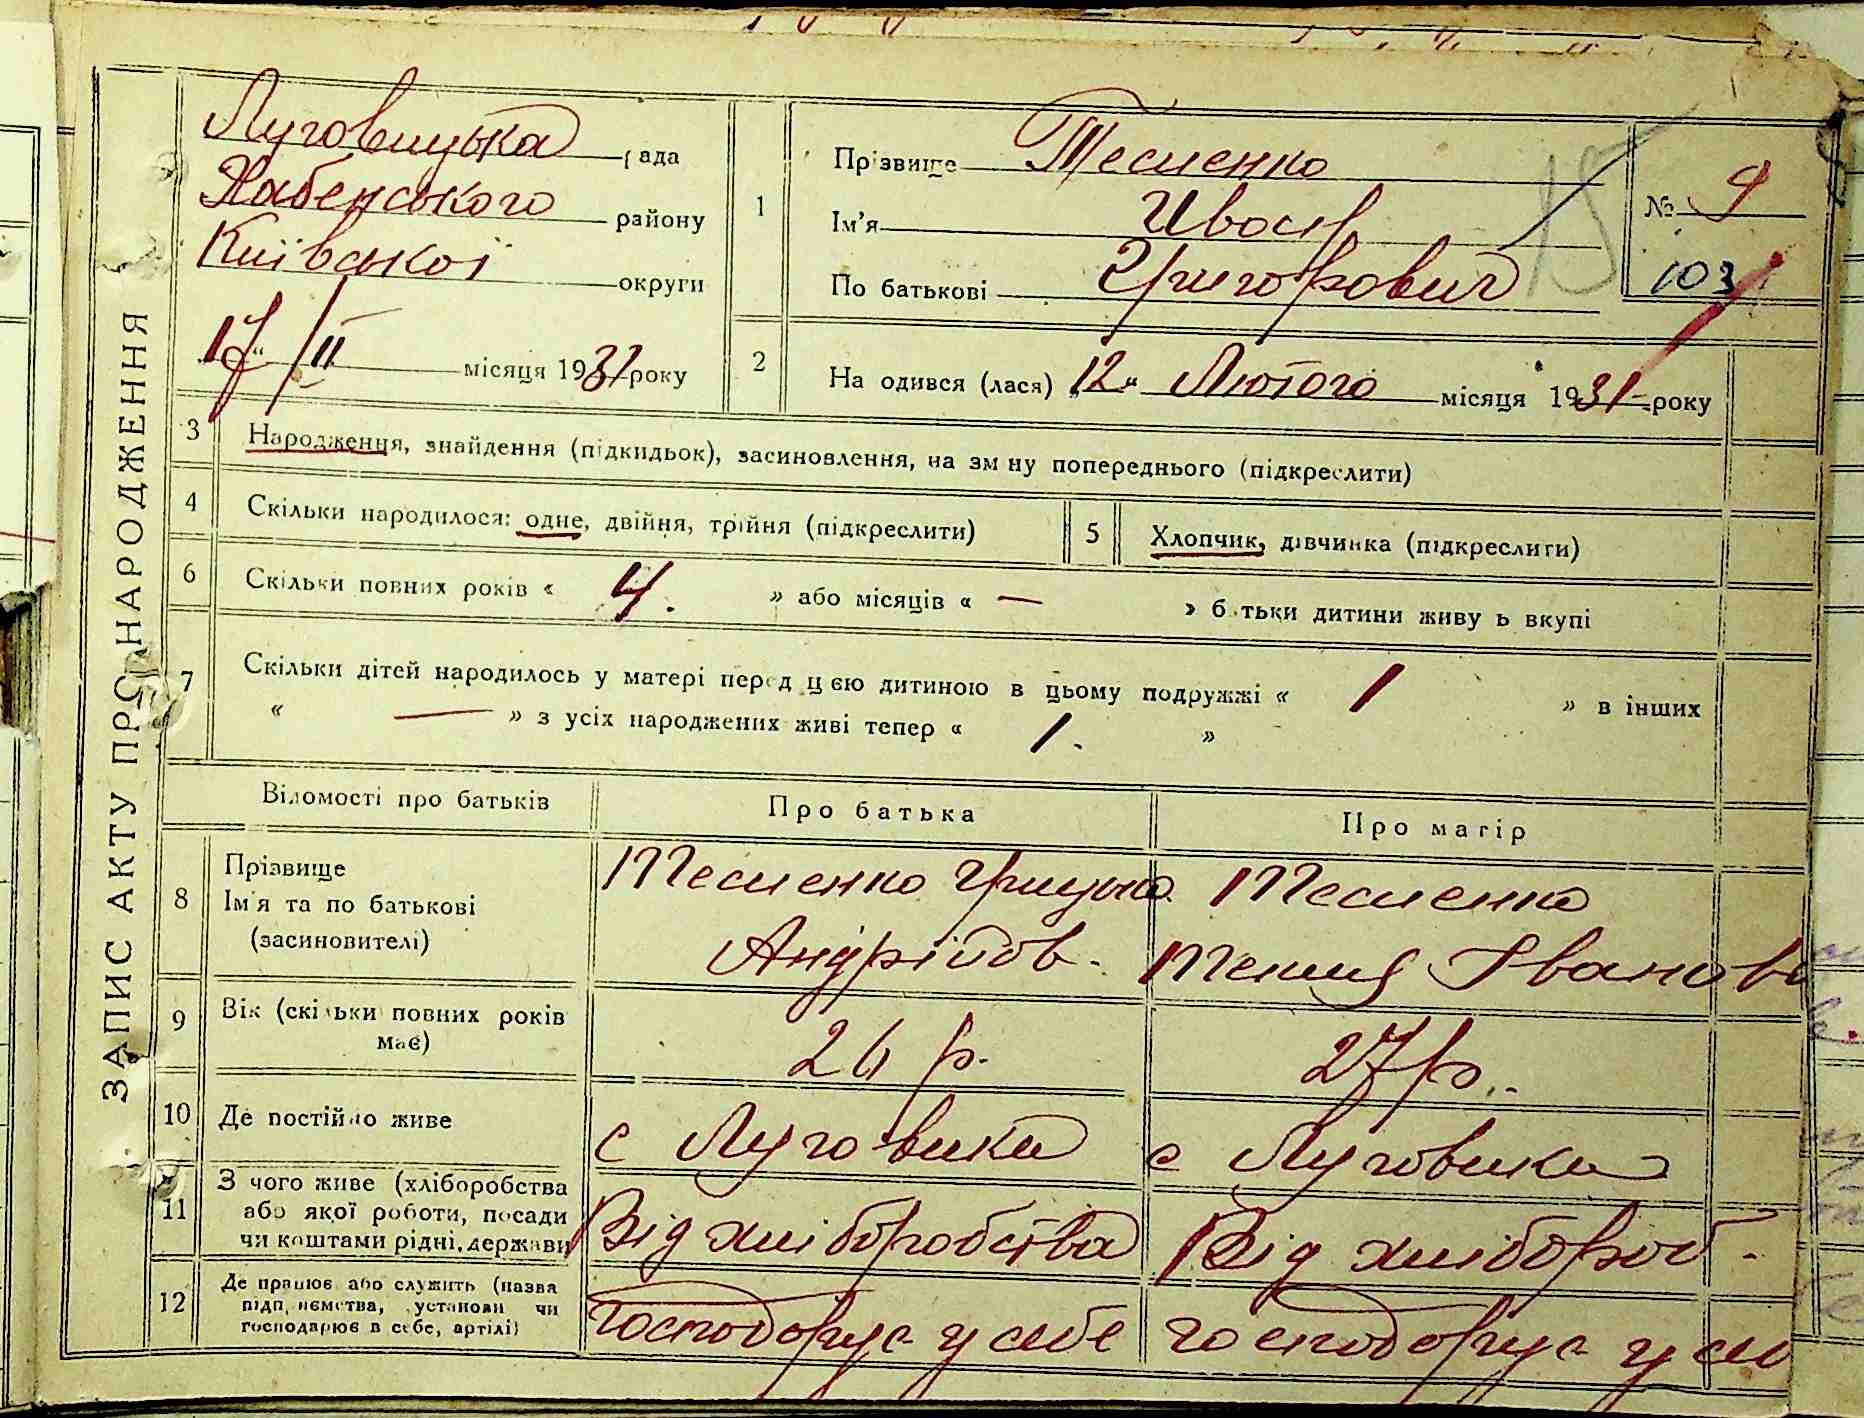 ЗАПИС АКТУ ПРО НАРОДЖЕННЯ
Луговицька рада
Хабенського району
Київської округи
17/II місяця 1931 року
1 Прізвище Тесленко
Ім'я Йвосип
По батькові Григорович
15
№ 9
103
2 На одився (лася) „12" Лютого місяця 1931 року
3 Народження, знайдення (підкидьок), засиновлення, на зм ну попереднього (підкреслити)
4 Скільки народилося: одне, двійня, трійня (підкреслити)
5 Хлопчик, дівчинка (підкреслити)
6 Скільки повних років « 4. » або місяців « — » б тьки дитини живу ь вкупі
7 Скільки дітей народилось у матері перед цією дитиною в цьому подружжі « 1 » в інших
« — » з усіх народжених живі тепер « 1. »
Відомості про батьків Про батька Про матір
8 Прізвище Ім'я та по батькові (засиновителі)
Тесленко Грицько Андрійов.
Тесленко Іванов
9 Вік (скільки повних років має)
26 р.
27 р.
10 Де постійно живе
с Луговики
с Луговики
11 З чого живе (хліборобства або якої роботи, посади чи коштами рідні, держави
Від хліборобства
Від хлібороб.
12 Де працює або служить (назва підп иємства, установи чи господарює в себе, артілі)
господорує у себе
господорує у се